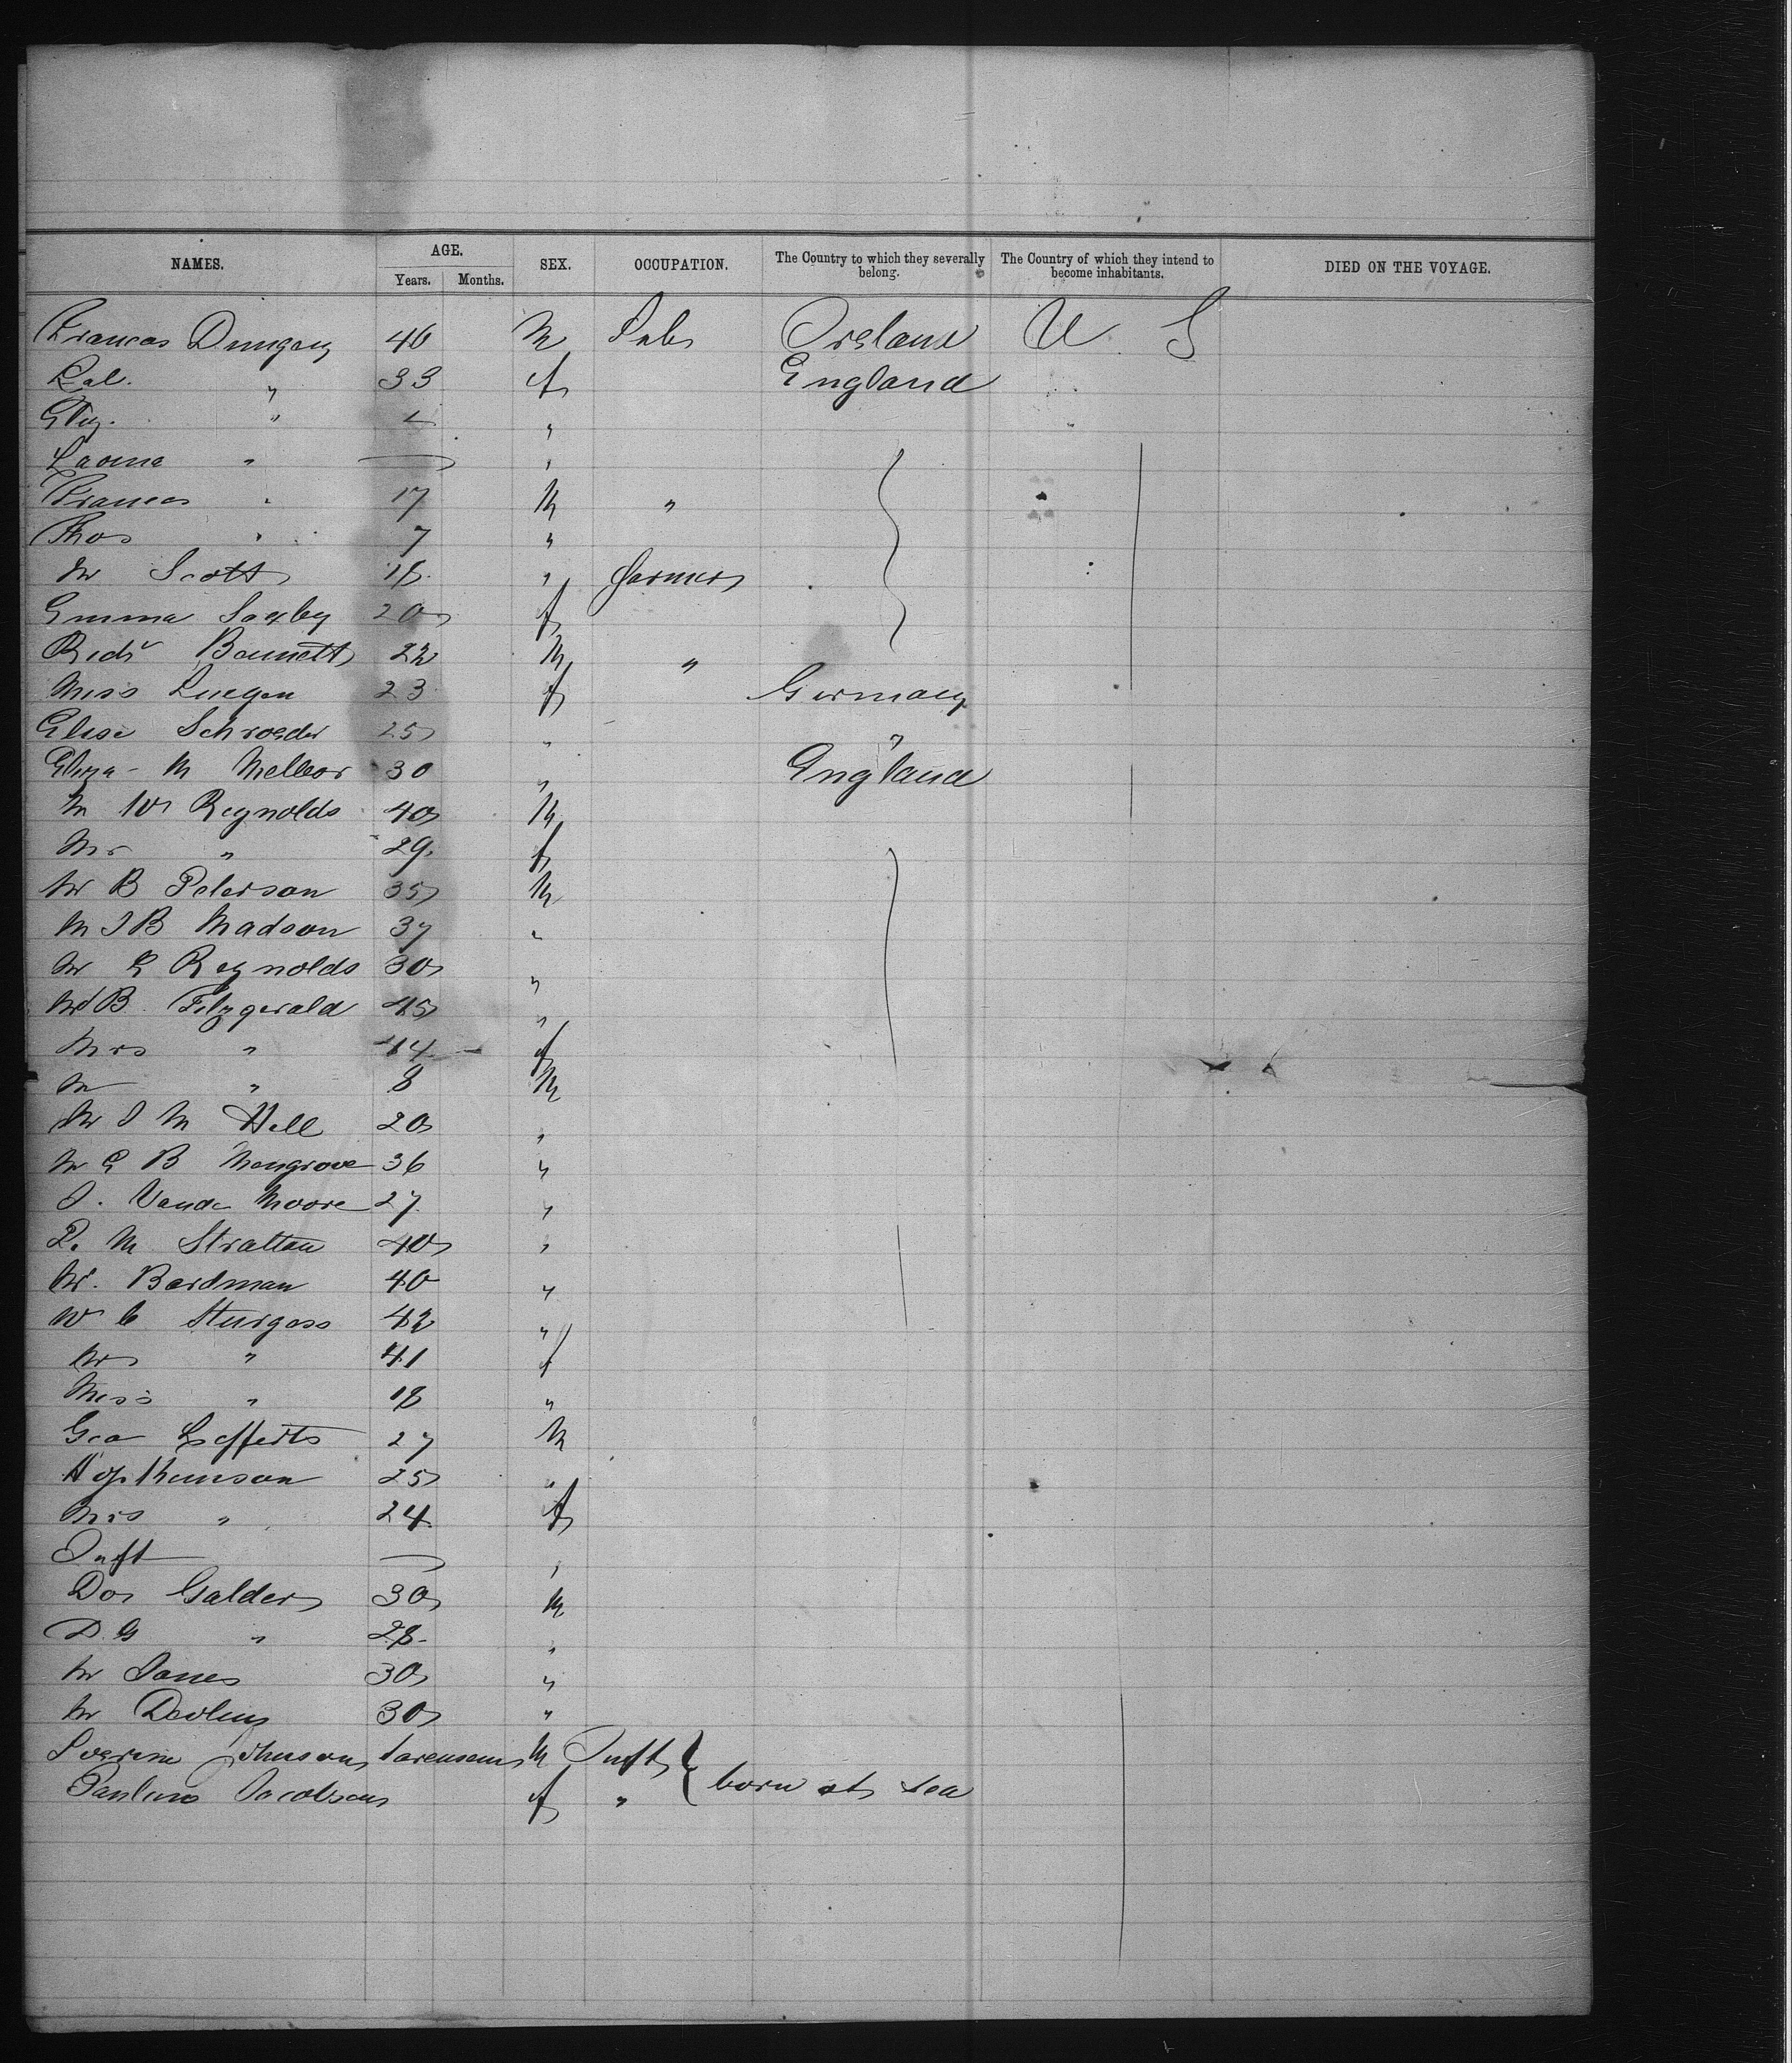 NAMES. AGE. SEX. OCCUPATION. The Country to which they severally belong. The Country of which they intend to become inhabitants. DIED ON THE VOYAGE.
Years. Months.
Francas Dungan 40 M Lab Ireland U S
33 f England
" "
Lavina " — "
Frances " 17 M "
Thos " 7 "
Mr Scott 18 " farmer
Emma Saxby 20 f
Richd Bennett 22 M "
Miss Luegen 23 f Germany
Elise Schroeder 25 " "
Eliza M Mellor 30 " England
M W Reynolds 40 M
Mrs " 29 f
Mr B Peterson 35 M
M J B Madson 37 "
Mr E Reynolds 30 "
Mr B Fitzgerald 45 "
Mrs " 14 f
M " 8 M
Mr J M Hill 20 "
M E B 36 "
J. Vande Moore 27 "
P. M Stratton 40 "
Mr. Bordman 40 "
W C Sturgess 42 "
Mrs " 41 f
Miss " 18 "
Geo Lefferts 27 M
25 "
Mrs " 24 f
Inft — "
Galder 30 M
D G " 28 "
Mr Jones 30 "
Mr Devlin 30 "
Johnson Sorensen M Inft } born at sea
Paulina Jacobsen f "